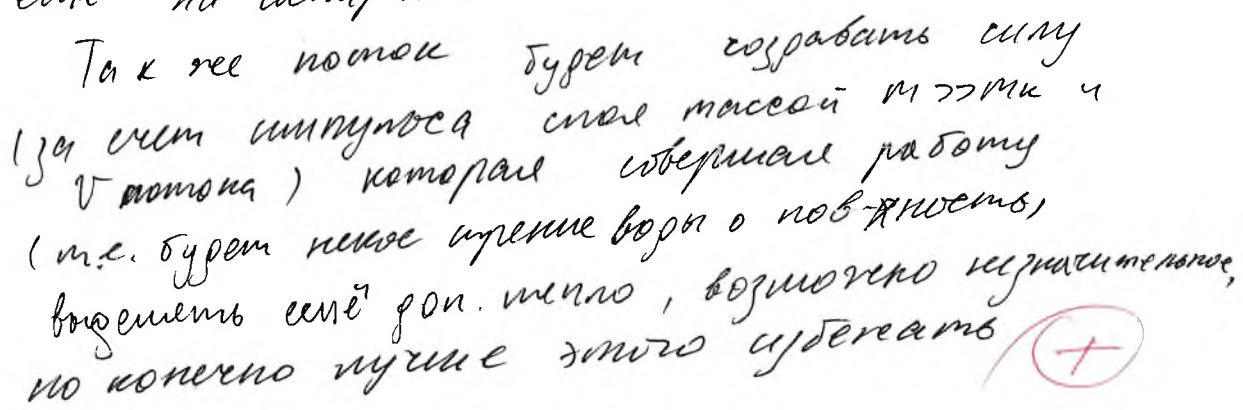 Так же поток будет создавать силу
(за счет импульса слоя массой m>>mк и
v потока) которая совершая работу
(т.е. будет некое трение воды о пов-хность,
выделять ещё доп. тепло, возможно незначительное,
но конечно лучше этого избежать +